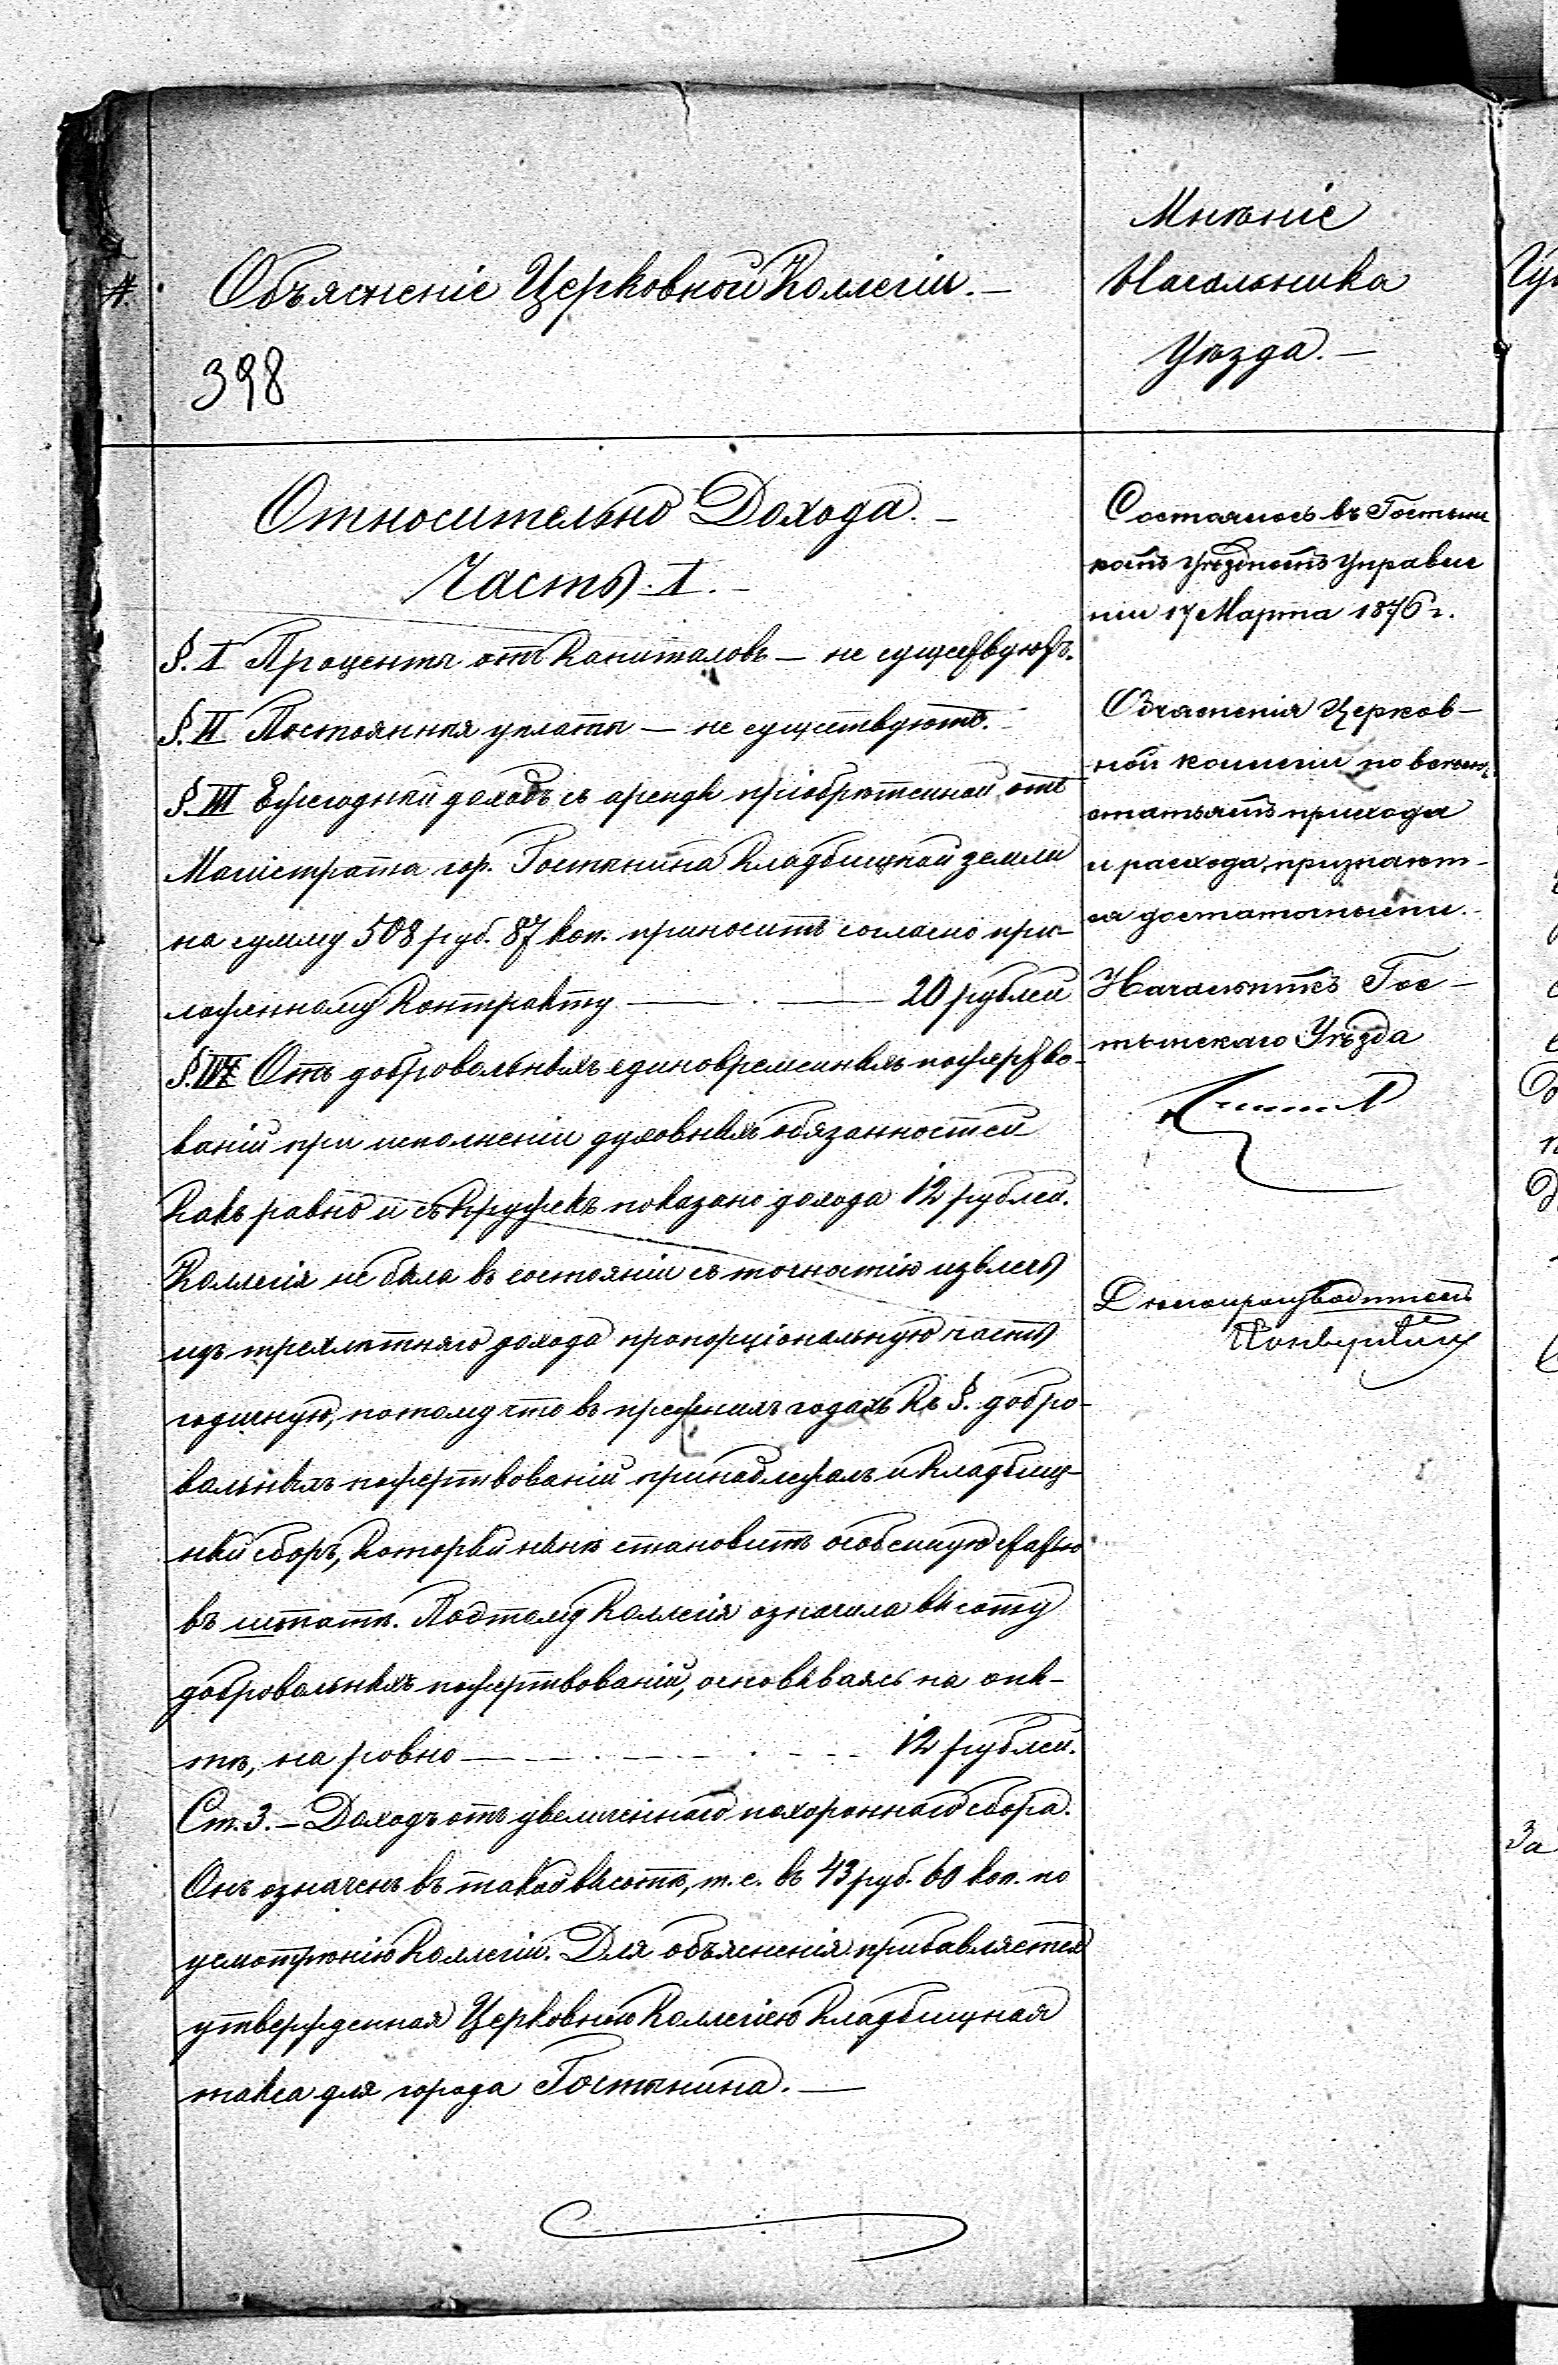 Объясненіе Церковной Коллегіи. —
398
Мнѣніе
Начальника
Уѣзда. —
Относительно Дохода. —
Часть I. —
§. I Проценты отъ капиталовъ — не существуютъ.
§. II Постоянныя уплаты — не существуютъ.
§. III Ежегодный доходъ съ аренды пріобрѣтенной отъ
Магистрата гор. Гостынина кладбищной земли
на сумму 508 руб. 87 коп. приноситъ согласно при-
ложенному контракту — . — 20 рублей
§. IV Отъ добровольныхъ единовременныхъ пожертво-
ваній при исполненіи духовныхъ обязанностей
какъ равно и съ кружекъ показано дохода 12 рублей.
Коллегія не была въ состояніи съ точностію извлечь
изъ трехлѣтняго дохода пропорціональную часть
годичную, потому что въ прежнихъ годахъ къ §. добро-
вольныхъ пожертвованій принадлежалъ и кладбищ-
ный сборъ, который нынѣ становитъ особенную статью
въ штатѣ. Поэтому Коллегія означила высоту
добровольныхъ пожертвованій, основываясь на опы-
тѣ, на ровно — 12 рублей.
Ст. 3. — Доходъ отъ увеличеннаго похороннаго сбора.
Онъ означенъ въ такой высотѣ, т. е. въ 43 руб. 60 коп. по
усмотрѣнію Коллегіи. Для объясненія прибавляется
утвержденная Церковною Коллегіею кладбищная
такса для города Гостынина. —
Состоялось въ Гостынин
скомъ Уѣздномъ Управле
ніи 17 Марта 1876 г.
Объясненія Церков-
ной коллегіи по всѣмъ
статьямъ прихода
и расхода признают-
ся достаточными.
Начальникъ Гос-
тынскаго Уѣзда
Дѣлопроизводитель
За